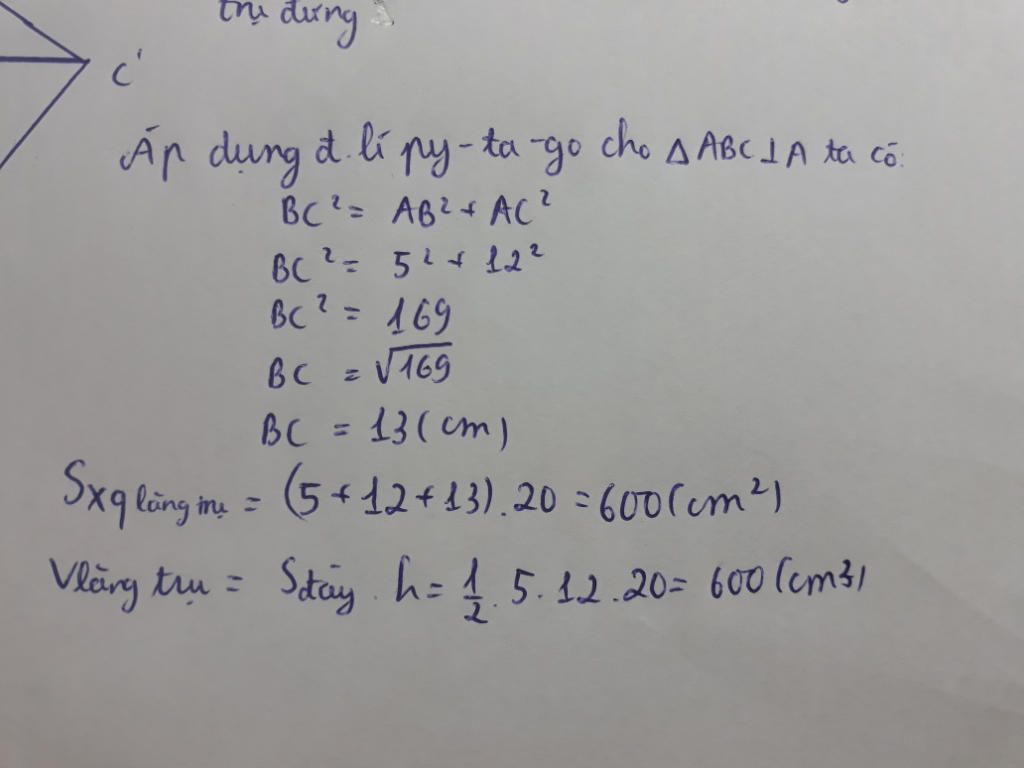 trụ đứng
C'
Áp dụng đ.lí py-ta-go cho Δ ABC⊥A ta có:
BC² = AB² + AC²
BC² = 5² + 12²
BC² = 169
BC = √169
BC = 13 (cm)
Sxq lăng trụ = (5+12+13).20 = 600 (cm²)
Vlăng trụ = Sđáy . h = 1/2 . 5 . 12 . 20 = 600 (cm³)